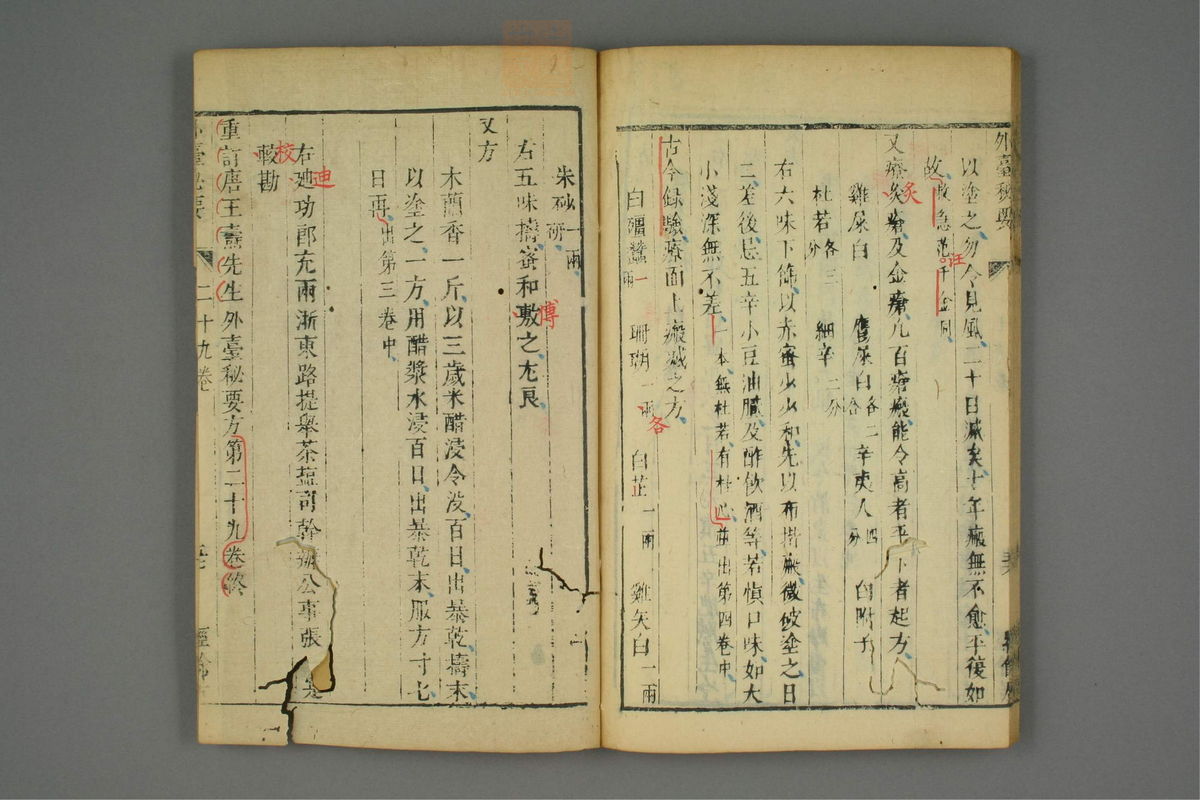 外臺秘要
以塗之勿令見風二十日減矣十年瘢無不愈平復如
故救急范汪千金同
又療灸瘡及金瘡凡百瘡瘢能令高者平下者起方
雞屎白 鷹屎白各二分 辛夷人四分 白附子
杜若各三分 細辛二分
右六味下篩以赤蜜少少和先以布揩瘢微破塗之日
二差後忌五辛小豆油膩及酢飲酒等若慎口味如大
小淺深無不差一本無杜若有杜心並出第四卷中
古今録驗療面上瘢滅之方
白殭蠶一兩 珊瑚一兩各 白芷一兩 雞矢白一兩
朱砂一兩研
右五味擣蜜和敷之尤良
傅
又方
木蘭香一斤以三歲米醋浸令没百日出暴乾擣末
以塗之一方用醋漿水浸百日出暴乾末服方寸七
日再出第三卷中
右廸功郎充兩浙東路提舉茶塩司幹辦公事張寔
迪
較勘
校
重訂唐王燾先生外臺秘要方第二十九卷終
臺秘要 二十九卷